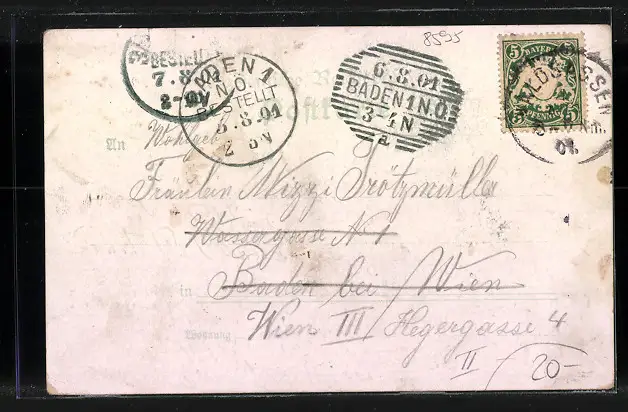 8595
BESTELLT
7.8.01
BADEN 1
N.Ö.
BESTELLT
5.8.01
6.8.01
BADEN 1 N.Ö.
3-4N
a
5 BAYERN 5
5 PFENNIG 5
01.
An
Wohlgeb
Fräulein Mizzi Trötzmüller
Wassagasse N 1
in Baden bei Wien
Wohnung Wien III Hegergasse 4
II
20-